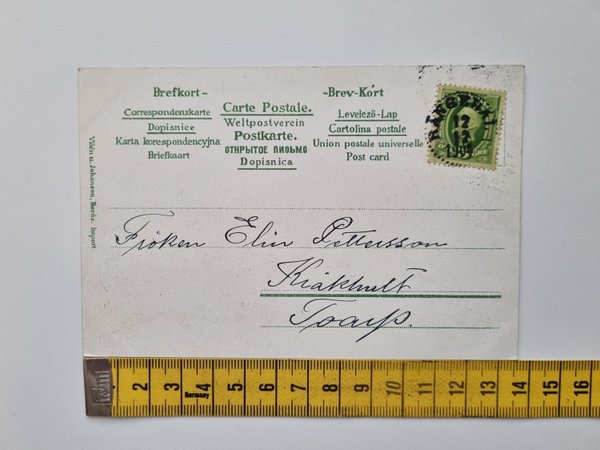 Brefkort -
-Brev-Kort
Correspondenzkarte
Dopisnice
Karta korespondencyjna
Briefkaart
Carte Postale.
Weltpostverein
Postkarte.
ОТКРЫТОЕ ПИСЬМО
Dopisnica
Levelező-Lap
Cartolina postale
Union postale universelle
Post card
2
12
Vilén u. Johansen, Borås. Import
Fröken Elin Pettersson
Kråkhult
Toarp.
2 3 4 5 6 7 8 9 10 11 12 13 14 15 16
Germany